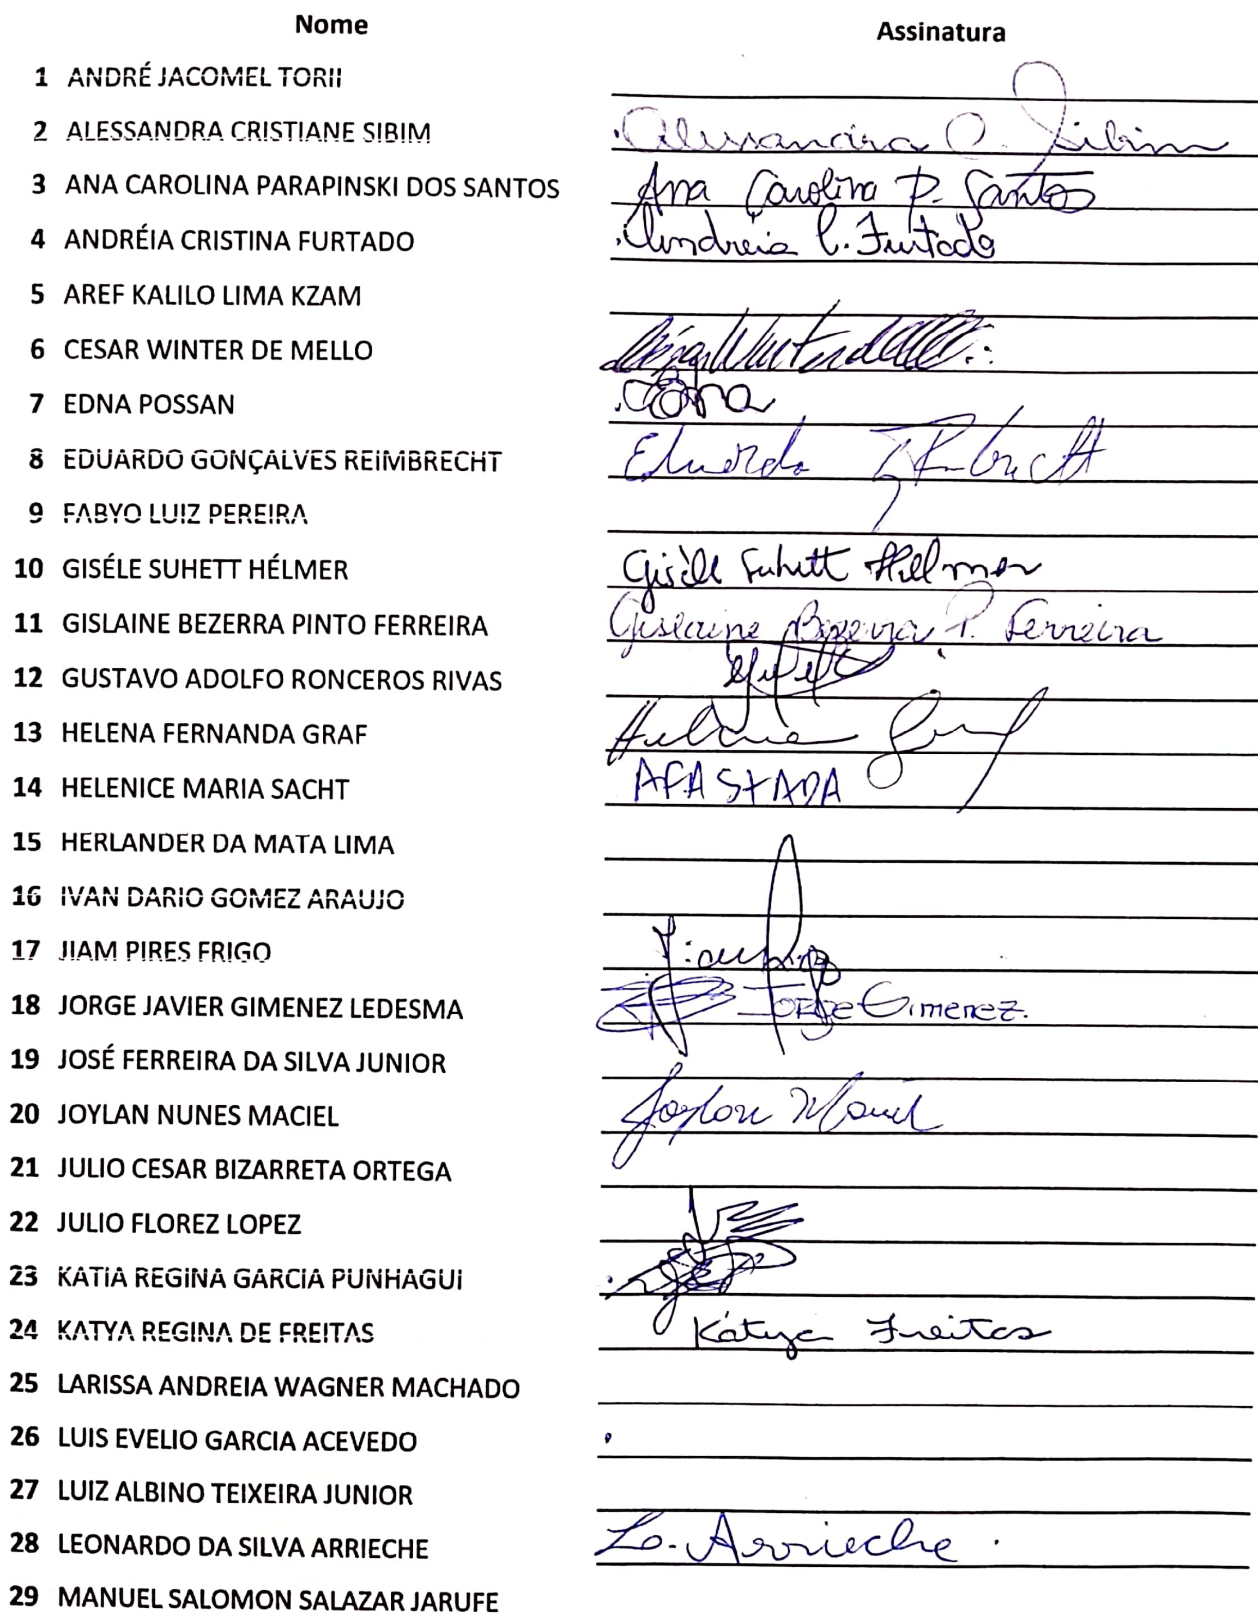 Nome Assinatura
1 ANDRÉ JACOMEL TORII
2 ALESSANDRA CRISTIANE SIBIM Alessandra C. Sibim
3 ANA CAROLINA PARAPINSKI DOS SANTOS Ana Carolina P. Santos
4 ANDRÉIA CRISTINA FURTADO Andreia C. Furtado
5 AREF KALILO LIMA KZAM
6 CESAR WINTER DE MELLO
7 EDNA POSSAN Edna
8 EDUARDO GONÇALVES REIMBRECHT Eduardo
9 FABYO LUIZ PEREIRA
10 GISÉLE SUHETT HÉLMER Gisèle Suhett Helmer
11 GISLAINE BEZERRA PINTO FERREIRA Gislaine Bezerra P. Ferreira
12 GUSTAVO ADOLFO RONCEROS RIVAS
13 HELENA FERNANDA GRAF Helena Graf
14 HELENICE MARIA SACHT AFASTADA
15 HERLANDER DA MATA LIMA
16 IVAN DARIO GOMEZ ARAUJO
17 JIAM PIRES FRIGO
18 JORGE JAVIER GIMENEZ LEDESMA Jorge Gimenez.
19 JOSÉ FERREIRA DA SILVA JUNIOR
20 JOYLAN NUNES MACIEL Joylan Maciel
21 JULIO CESAR BIZARRETA ORTEGA
22 JULIO FLOREZ LOPEZ
23 KATIA REGINA GARCIA PUNHAGUI
24 KATYA REGINA DE FREITAS Kátya Freitas
25 LARISSA ANDREIA WAGNER MACHADO
26 LUIS EVELIO GARCIA ACEVEDO
27 LUIZ ALBINO TEIXEIRA JUNIOR
28 LEONARDO DA SILVA ARRIECHE Lo. Arrieche
29 MANUEL SALOMON SALAZAR JARUFE